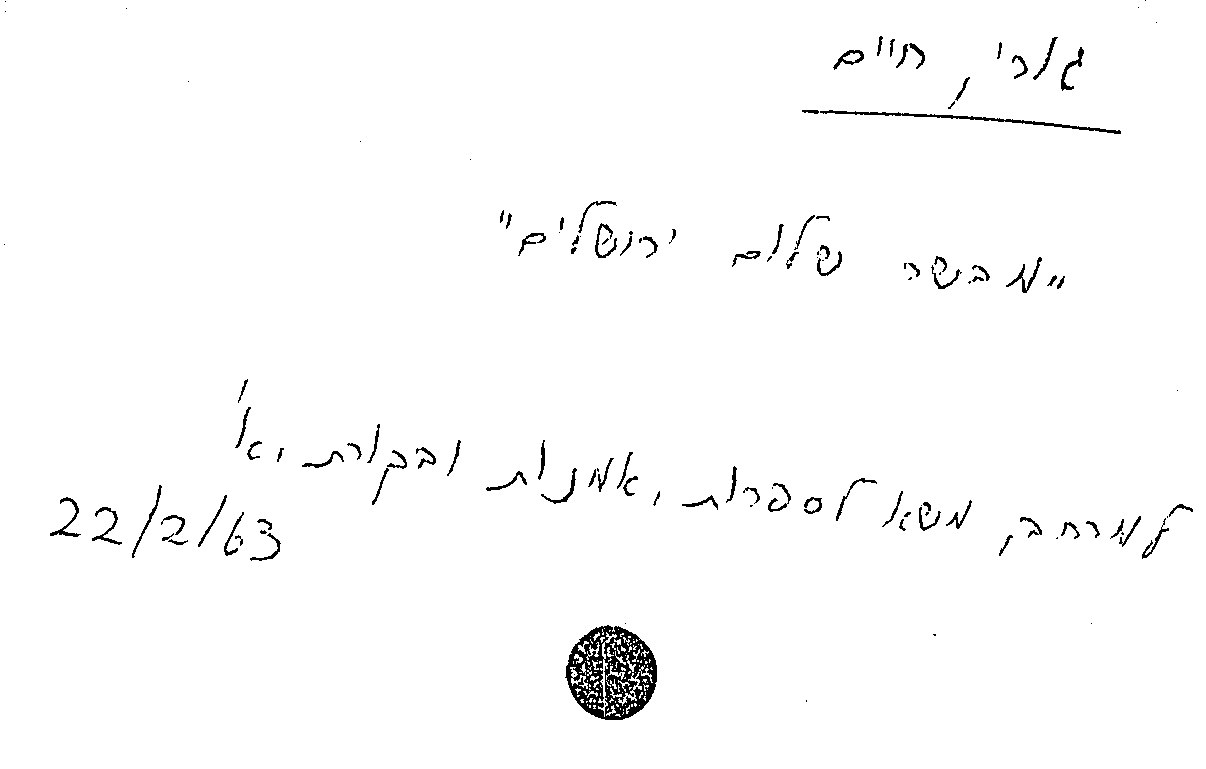 גורי, חיים
"מבשרה שלום ירושלים"
למרחב, משא לספרות, אמנות ובקורת, א'
22/2/63